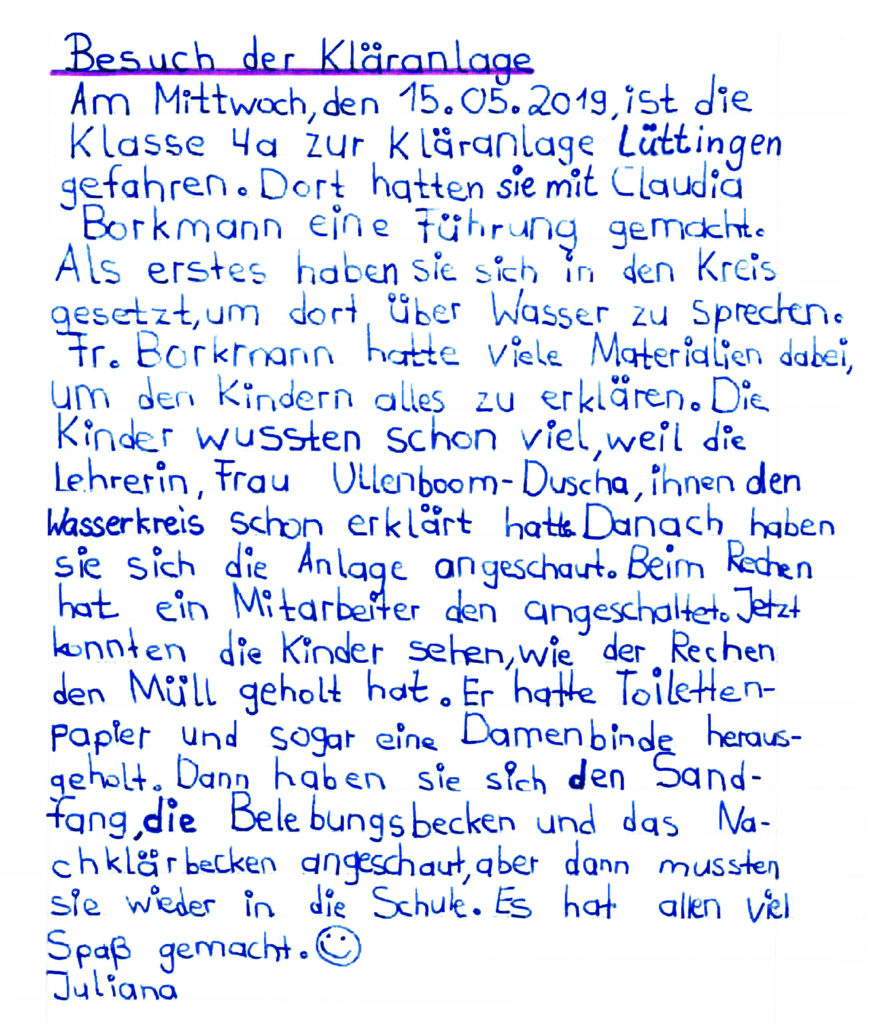 Besuch der Kläranlage
Am Mittwoch, den 15.05.2019, ist die
Klasse 4a zur Kläranlage Lüttingen
gefahren. Dort hatten sie mit Claudia
Borkmann eine Führung gemacht.
Als erstes haben sie sich in den Kreis
gesetzt, um dort über Wasser zu sprechen.
Fr. Borkmann hatte viele Materialien dabei,
um den Kindern alles zu erklären. Die
Kinder wussten schon viel, weil die
Lehrerin, Frau Ullenboom-Duscha, ihnen den
Wasserkreis schon erklärt hatte. Danach haben
sie sich die Anlage angeschaut. Beim Rechen
hat ein Mitarbeiter den angeschaltet. Jetzt
konnten die Kinder sehen, wie der Rechen
den Müll geholt hat. Er hatte Toiletten-
papier und sogar eine Damenbinde heraus-
geholt. Dann haben sie sich den Sand-
fang, die Belebungsbecken und das Na-
chklärbecken angeschaut, aber dann mussten
sie wieder in die Schule. Es hat allen viel
Spaß gemacht. ☺
Juliana